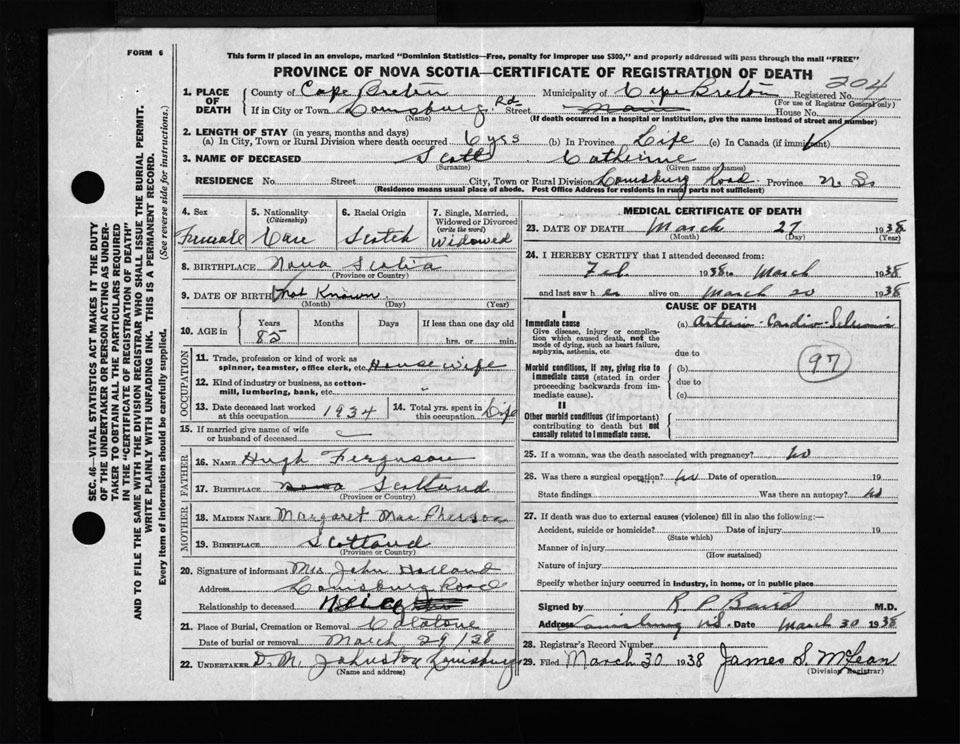 FORM 6
This form if placed in an envelope, marked "Dominion Statistics—Free, penalty for improper use $300," and properly addressed will pass through the mail "FREE"
PROVINCE OF NOVA SCOTIA—CERTIFICATE OF REGISTRATION OF DEATH
304
SEC. 46—VITAL STATISTICS ACT MAKES IT THE DUTY
OF THE UNDERTAKER OR PERSON ACTING AS UNDER-
TAKER TO OBTAIN ALL THE PARTICULARS REQUIRED
IN THE "CERTIFICATE OF REGISTRATION OF DEATH"
AND TO FILE THE SAME WITH THE DIVISION REGISTRAR WHO SHALL ISSUE THE BURIAL PERMIT.
WRITE PLAINLY WITH UNFADING INK. THIS IS A PERMANENT RECORD.
Every item of information should be carefully supplied. (See reverse side for instructions.)
1. PLACE OF DEATH County of Cape Breton Municipality of Cape Breton Registered No.
(For use of Registrar General only)
If in City or Town Louisburg Rd Street Main House No.
(Name) (If death occurred in a hospital or institution, give the name instead of street and number)
2. LENGTH OF STAY (in years, months and days)
(a) In City, Town or Rural Division where death occurred 6 yrs (b) In Province Life (c) In Canada (if immigrant)
3. NAME OF DECEASED Scott Catherine
(Surname) (Given name or names)
RESIDENCE No. Street City, Town or Rural Division Louisburg Road Province N. S.
(Residence means usual place of abode. Post Office Address for residents in rural parts not sufficient)
4. Sex Female
5. Nationality (Citizenship) Can
6. Racial Origin Scotch
7. Single, Married, Widowed or Divorced (write the word) Widowed
8. BIRTHPLACE Nova Scotia
(Province or Country)
9. DATE OF BIRTH Not Known
(Month) (Day) (Year)
10. AGE in Years 85 Months Days If less than one day old
hrs. or min.
OCCUPATION
11. Trade, profession or kind of work as spinner, teamster, office clerk, etc. House wife
12. Kind of industry or business, as cotton-mill, lumbering, bank, etc. "
13. Date deceased last worked at this occupation 1934 14. Total yrs. spent in this occupation Life
15. If married give name of wife or husband of deceased
FATHER
16. NAME Hugh Ferguson
17. BIRTHPLACE Nova Scotland
(Province or Country)
MOTHER
18. MAIDEN NAME Margaret MacPherson
19. BIRTHPLACE Scotland
(Province or Country)
20. Signature of informant Mrs John Holland
Address Louisburg Road
Relationship to deceased
21. Place of Burial, Cremation or Removal Catalone
Date of burial or removal March 29/38
22. UNDERTAKER D. M. Johnston Louisburg
(Name and address)
MEDICAL CERTIFICATE OF DEATH
23. DATE OF DEATH March 27 1938
(Month) (Day) (Year)
24. I HEREBY CERTIFY that I attended deceased from:
Feb 1938 to March 1938
and last saw h er alive on March 20 1938
CAUSE OF DEATH
I
Immediate cause (a) Arterio-Cardio-Sclerosis
Give disease, injury or complica-
tion which caused death, not the
mode of dying, such as heart failure,
asphyxia, asthenia, etc. due to
97
Morbid conditions, if any, giving rise to (b)
immediate cause (stated in order
proceeding backwards from im-
mediate cause). due to
(c)
II
Other morbid conditions (if important)
contributing to death but not
causally related to immediate cause.
25. If a woman, was the death associated with pregnancy? No
26. Was there a surgical operation? No Date of operation 19
State findings Was there an autopsy? No
27. If death was due to external causes (violence) fill in also the following:—
Accident, suicide or homicide? Date of injury 19
(State which)
Manner of injury
(How sustained)
Nature of injury
Specify whether injury occurred in industry, in home, or in public place
Signed by R P Baird M.D.
Address Louisburg NS. Date March 30 1938
28. Registrar's Record Number
29. Filed March 30 1938 James S. McLean
(Division Registrar)